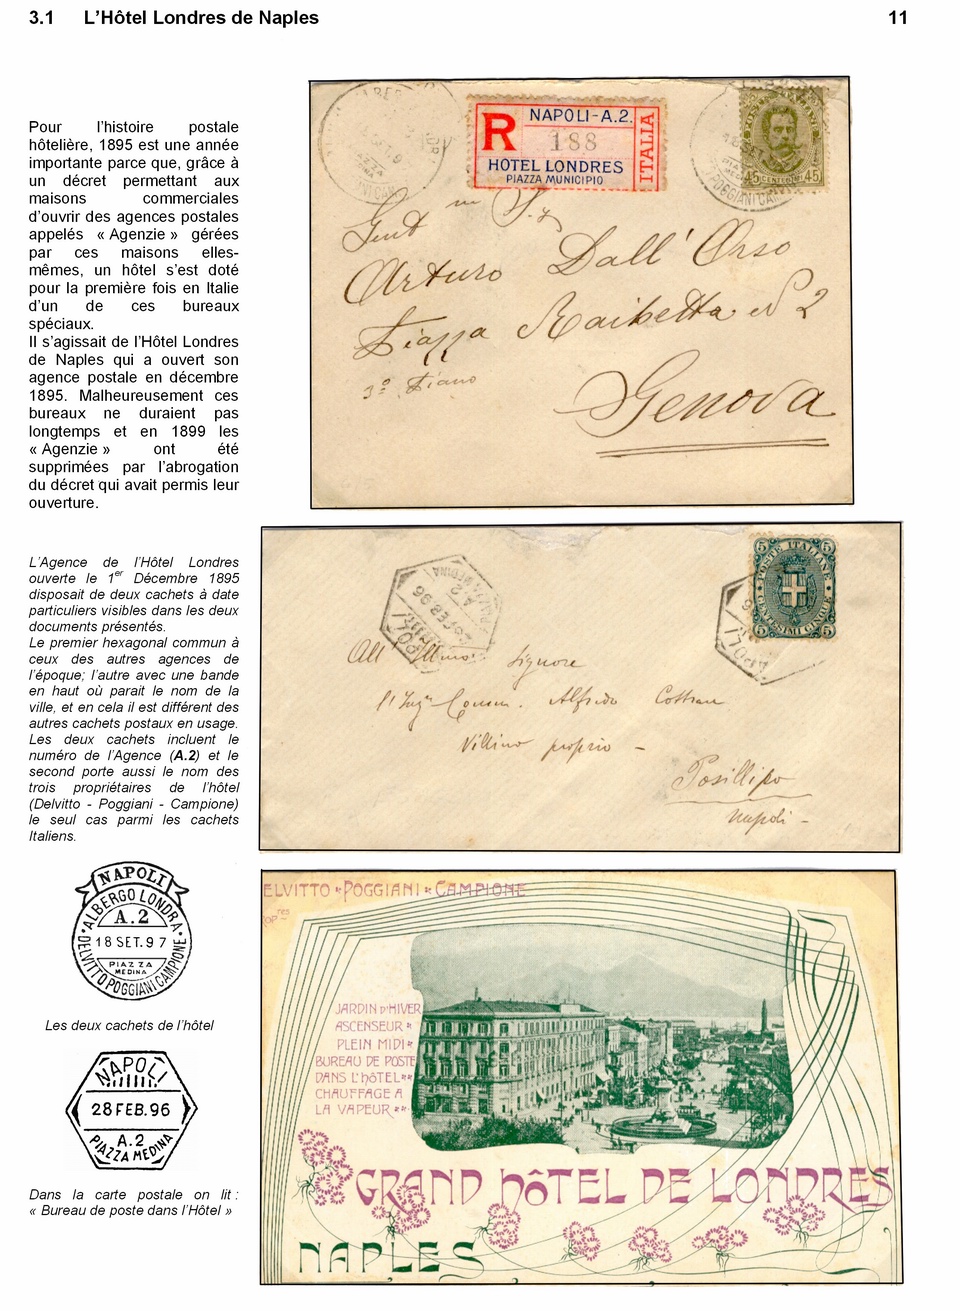 3.1 L'Hôtel Londres de Naples 11
Pour l'histoire postale
hôtelière, 1895 est une année
importante parce que, grâce à
un décret permettant aux
maisons commerciales
d'ouvrir des agences postales
appelés « Agenzie » gérées
par ces maisons elles-
mêmes, un hôtel s'est doté
pour la première fois en Italie
d'un de ces bureaux
spéciaux.
Il s'agissait de l'Hôtel Londres
de Naples qui a ouvert son
agence postale en décembre
1895. Malheureusement ces
bureaux ne duraient pas
longtemps et en 1899 les
« Agenzie » ont été
supprimées par l'abrogation
du décret qui avait permis leur
ouverture.
L'Agence de l'Hôtel Londres
ouverte le 1er Décembre 1895
disposait de deux cachets à date
particuliers visibles dans les deux
documents présentés.
Le premier hexagonal commun à
ceux des autres agences de
l'époque; l'autre avec une bande
en haut où parait le nom de la
ville, et en cela il est différent des
autres cachets postaux en usage.
Les deux cachets incluent le
numéro de l'Agence (A.2) et le
second porte aussi le nom des
trois propriétaires de l'hôtel
(Delvitto - Poggiani - Campione)
le seul cas parmi les cachets
Italiens.
NAPOLI
ALBERGO LONDRA
A.2
18 SET. 9 7
PIAZZA
MEDINA
DELVITTO POGGIANI CAMPIONE
Les deux cachets de l'hôtel
NAPOLI
28 FEB. 96
A.2
PIAZZA MEDINA
Dans la carte postale on lit :
« Bureau de poste dans l'Hôtel »
R
NAPOLI-A.2.
188
HOTEL LONDRES
PIAZZA MUNICIPIO
ITALIA
45 CENTESIMI 45
POGGIANI CAM
Gent Sig
Arturo Dall'Orso
Piazza Raibetta N 2
3º Piano
Genova
POSTE ITALIANE
5 5
CENTESIMI CINQUE
5 5
A.2
FEB 96
APOLI
All' Illmo Signore
l'Ingr Comm. Alfredo Cottrau
Villino proprio -
Posillipo
Napoli -
ELVITTO POGGIANI CAMPIONE
JARDIN D'HIVER
ASCENSEUR
PLEIN MIDI
BUREAU DE POSTE
DANS L'HÔTEL
CHAUFFAGE A
LA VAPEUR
GRAND HÔTEL DE LONDRES
NAPLES